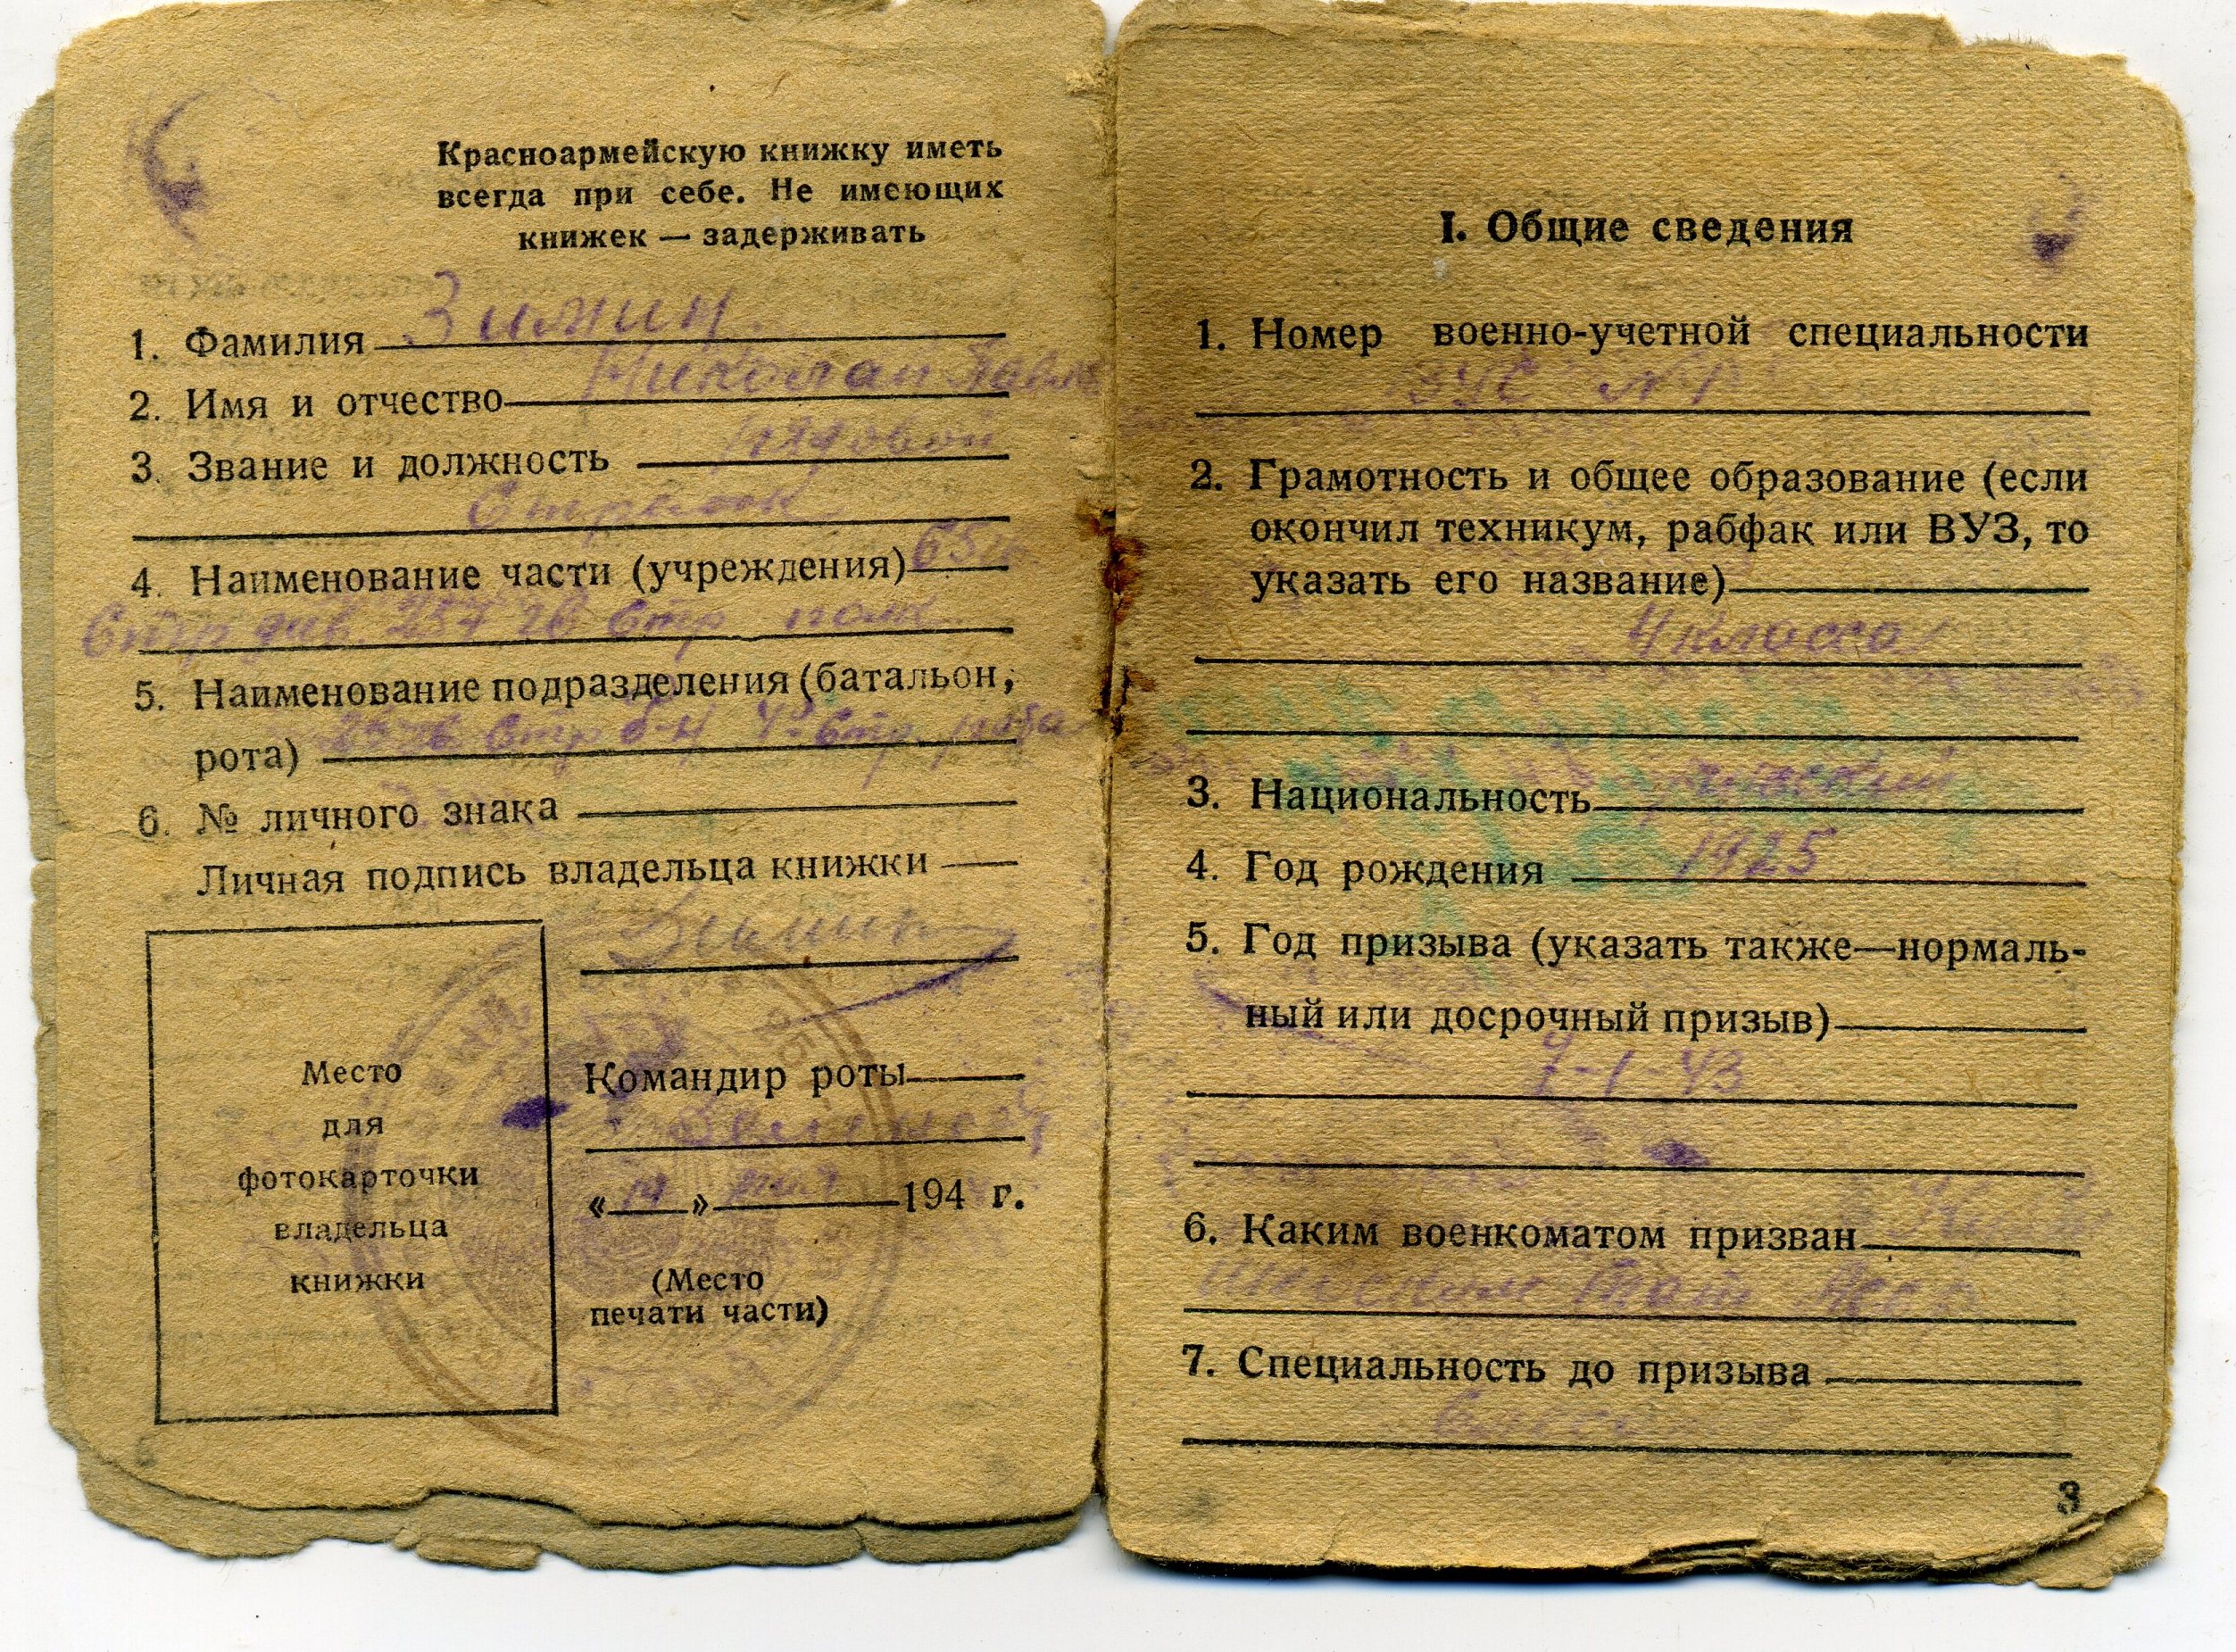 Красноармейскую книжку иметь
всегда при себе. Не имеющих
книжек — задерживать
1. Фамилия Зимин
2. Имя и отчество Николай Павл
3. Звание и должность рядовой
Стрелок
4. Наименование части (учреждения) 65
Стр див 254 гв Стр полк
5. Наименование подразделения (батальон,
рота) Стр б-н 4 Стр рота
6. № личного знака
Личная подпись владельца книжки
Зимин
Место
для
фотокарточки
владельца
книжки
Командир роты
« 14 » 194 г.
(Место
печати части)
I. Общие сведения
1. Номер военно-учетной специальности
ВУС № 1
2. Грамотность и общее образование (если
окончил техникум, рабфак или ВУЗ, то
указать его название)
4 класса
3. Национальность русский
4. Год рождения 1925
5. Год призыва (указать также—нормаль-
ный или досрочный призыв)
7-1-43
6. Каким военкоматом призван
7. Специальность до призыва
3